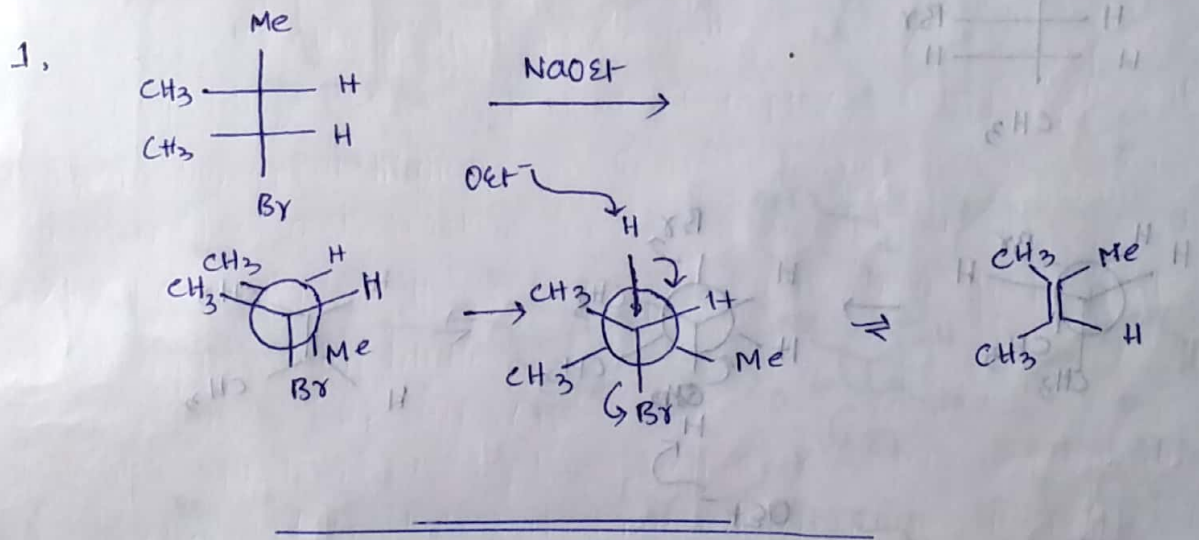 1.
Me
CH3 H
CH3 H
Br
NaOEt
OEt-
H
CH3 H
CH3 H
Me
Br
CH3 H
CH3 Me
Br
CH3 Me
CH3 H